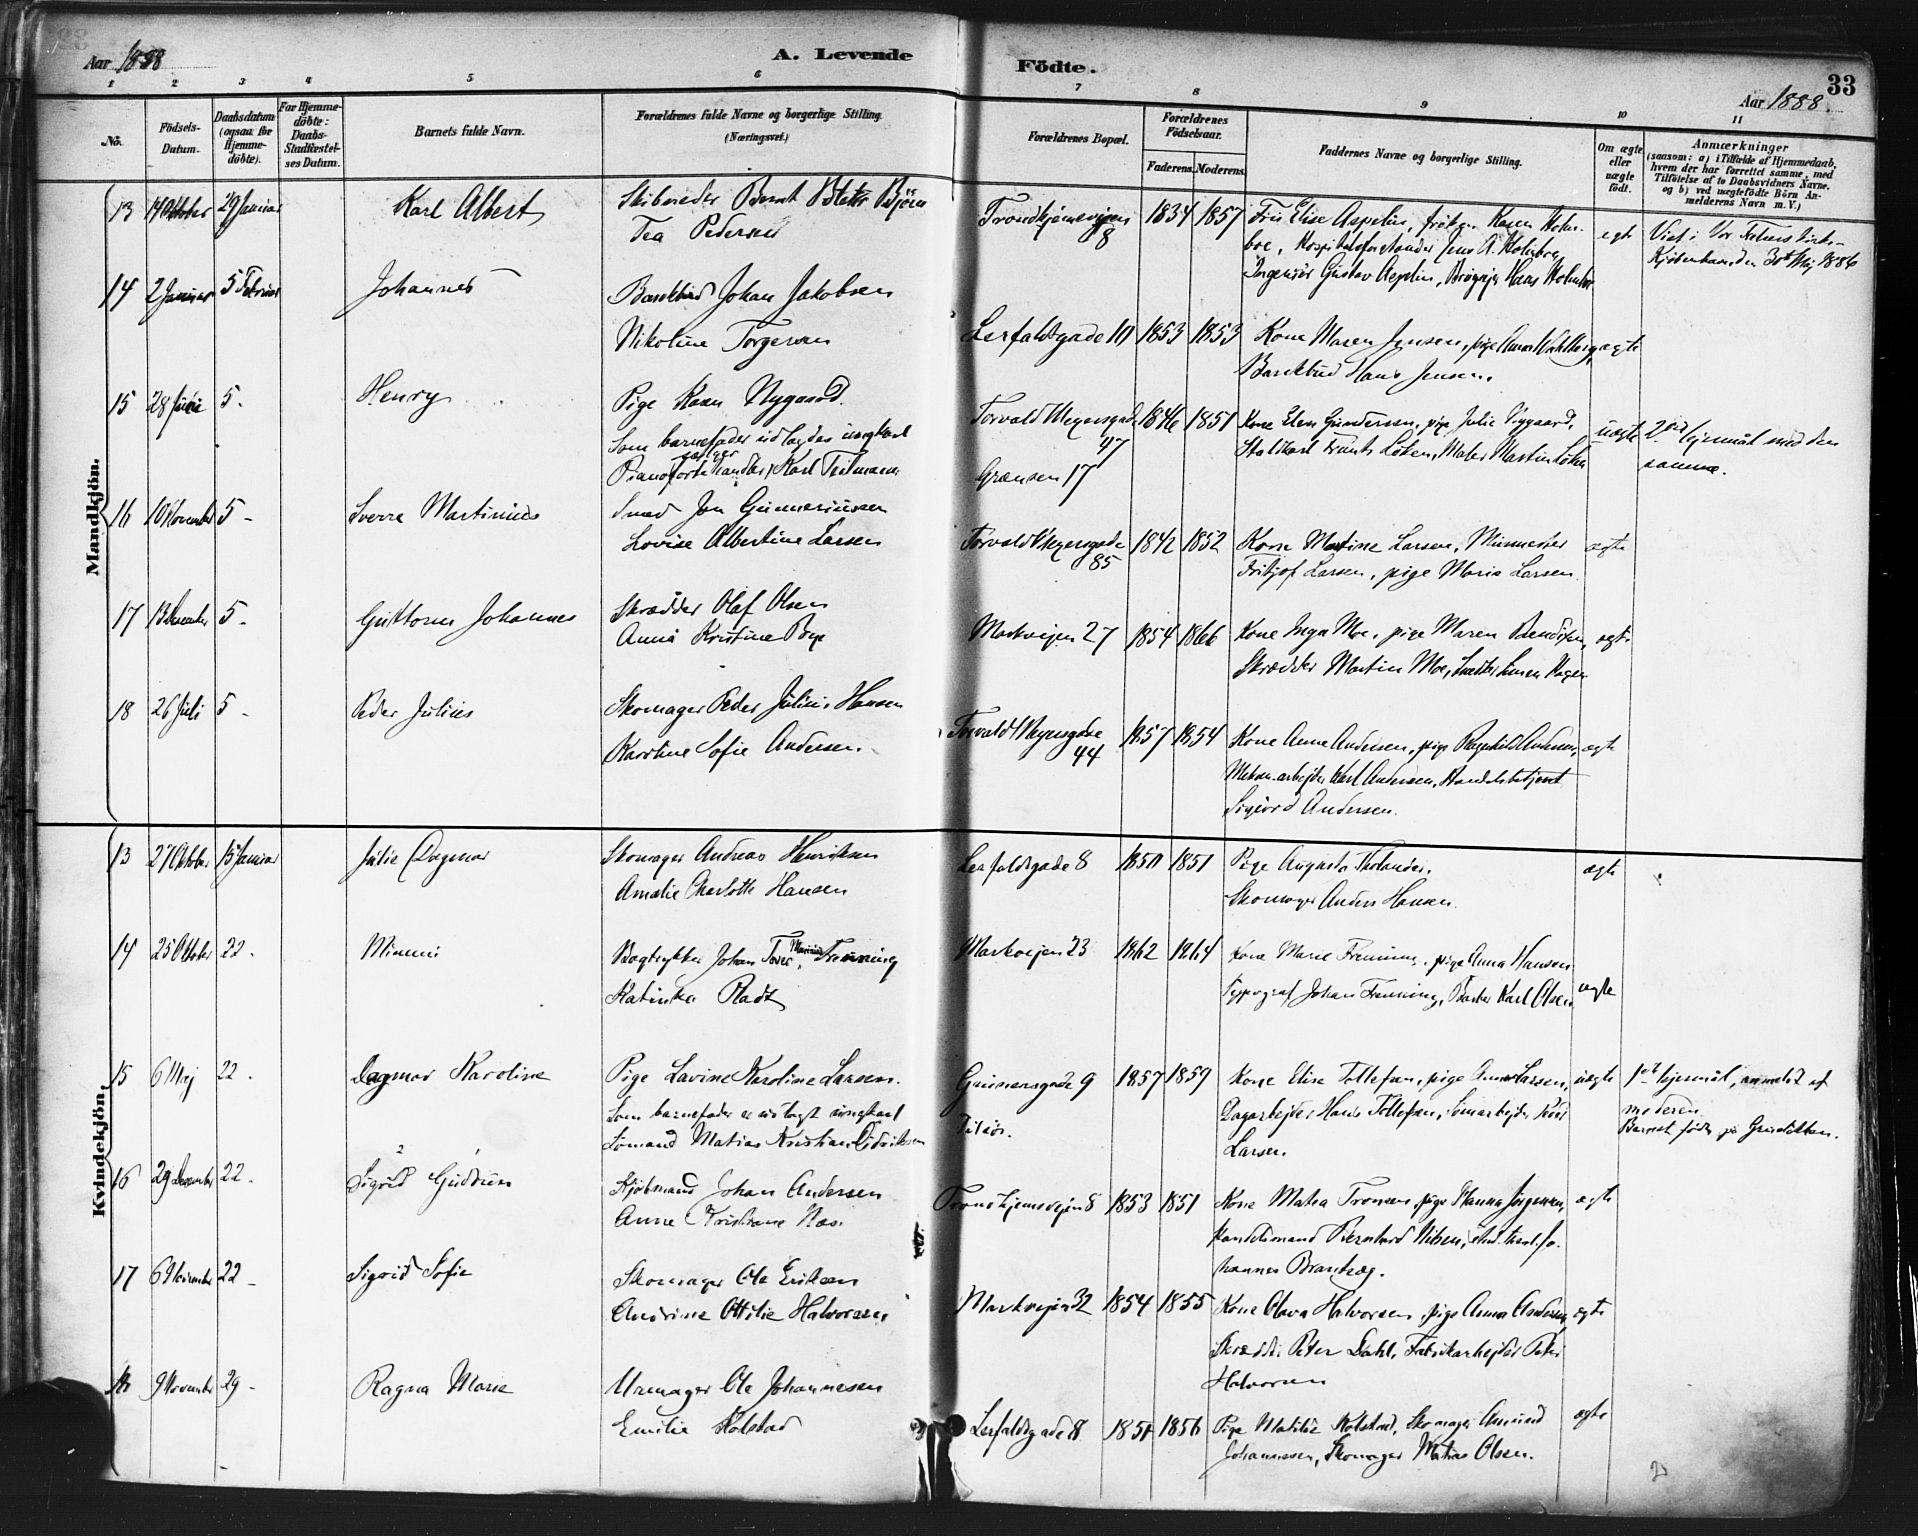 Aar 1888
A. Levende
Födte.
Aar 1888.
33
1 2 3 4 5 6 7 8 9 10 11
No.
Födsels-
Datum.
Daabsdatum
(ogsaa for
Hjemme-
döbte).
For Hjemme-
döbte:
Daabs-
Stadfæstel-
ses Datum.
Barnets fulde Navn.
Forældrenes fulde Navne og borgerlige Stilling.
(Næringsvei.)
Forældrenes Bopæl.
Forældrenes
Födselsaar.
Faderens. Moderens.
Faddernes Navne og borgerlige Stilling.
Om ægte
eller
uægte
födt.
Anmærkninger
(saasom: a) i Tilfælde af Hjemmedaab,
hvem der har forrettet samme, med
Tilföielse af to Daabsvidners Navne,
og b) ved uægtefödte Börn An-
melderens Navn m. V.)
Mandkjön.
13 14 Oktober 29 Januar Karl Albert Skibsreder Bernt Bjørn
Tea Pedersen
Trondhjemsvejen 8 1834 1857 Fru Elise Aspelin, frøken Karen Holm-
boe, Hospitalsforstander Jens A. Holmboe,
Ingeniør Gustav Aspelin, Hans Holmboe
egte Viet i Vor Frelsers Kirke
Kjøbenhavn den 30te Maj 1886
14 2 Januar 5 Februar Johannes Johan Jakobsen
Nikoline Torgersen
Lerfaldsgade 10 1853 1853 Kone Maren Jensen, pige Anna Wahlberg, ægte
Hans Jensen.
15 28 Juni 5. Henry Pige Karen Nygaard.
Som barnefader udlagdes ungkarl
Pianoforte Karl
Torvald Meyersgade 47
Grænsen 17
1846 1851 Kone Elen Gundersen, pige Julie Nygaard,
Staldkarl Frants Løken, Maler Martin Løken
uægte 2det lejermål med den
samme.
16 10 November 5 - Sverre Martinius Smed Jon Gunneriussen
Lovise Albertine Larsen
Torvald Meyersgade 85 1842 1852 Kone Martine Larsen, Murmester
Fritjof Larsen, pige Marie Larsen
ægte
17 13 Desember 5. Guttorm Johannes Skrædder Olaf Olsen
Anna Kristine Bye
Markvejen 27 1854 1866 Kone Inga Moe, pige Maren Bendixen, ægte
Skrædder Martin Moe,
18 26 Juli 5 - Peder Julius Skomager Peder Julius Hansen
Karoline Sofie Andersen.
Torvald Meyersgade 44 1857 1854 Kone Anne Andersen, pige Ragnhild Andersen, ægte
Mekan. arbejder Karl Andersen, Handelsbetjent
Sigvard Andersen.
Kvindekjön.
13 27 Oktober 15 Januar Julie Dagmar Skomager Andreas Henriksen
Amalie Charlotte Hansen
Lerfaldsgade 8 1850 1851 Pige Augusta Tholander.
Skomager Anders Hansen.
ægte
14 25 Oktober 22. Mimmi Bogtrykker Johan Marinius Frenning
Katinka Radt
Markvejen 23 1862 1864 Kone Marie Frenning, pige Anna Hansen
Typograf Johan Frenning, Karl Olsen.
ægte
15 6 Maj 22. Dagmar Karoline Pige Lavine Karoline Larsen.
Som barnefader er udlagt ungkarl
Sømand Matias Kristian Didriksen
Gunnersgade 9 1857 1859 Kone Elise Tollefsen, pige Anna Larsen,
Dagarbejder Hans Tollefsen,
Larsen.
uægte 1ste lejermål, anmeldt af
moderen
Barnet født på Grindbakken.
16 29 Desember 22. Sigrid Gudrun Kjøbmand Johan Andersen
Anne Kristiane Næs
Trondhjemsvejen 8 1853 1851 Kone Matea Tronsen, pige Hanna Jørgensen,
Handelsmand Bernhard Nilsen, Jo-
hannes Brandzæg.
ægte
17 6 November 22 - Sigrid Sofie Skomager Ole Eriksen
Andrine Ottilie Halvorsen
Markvejen 32 1854 1855 Kone Olava Halvorsen, pige Anna Andersen, ægte
Skrædder Peter Dahl, Fabrikarbejder Peter
Halvorsen
9 November 29 - Ragna Marie Urmager Ole Johannesen
Emilie Kolstad
Lerfaldsgade 8 1851 1856 Pige Matilde Kolstad, Skomager Amund
Johannessen, Skomager Matias Olsen.
ægte